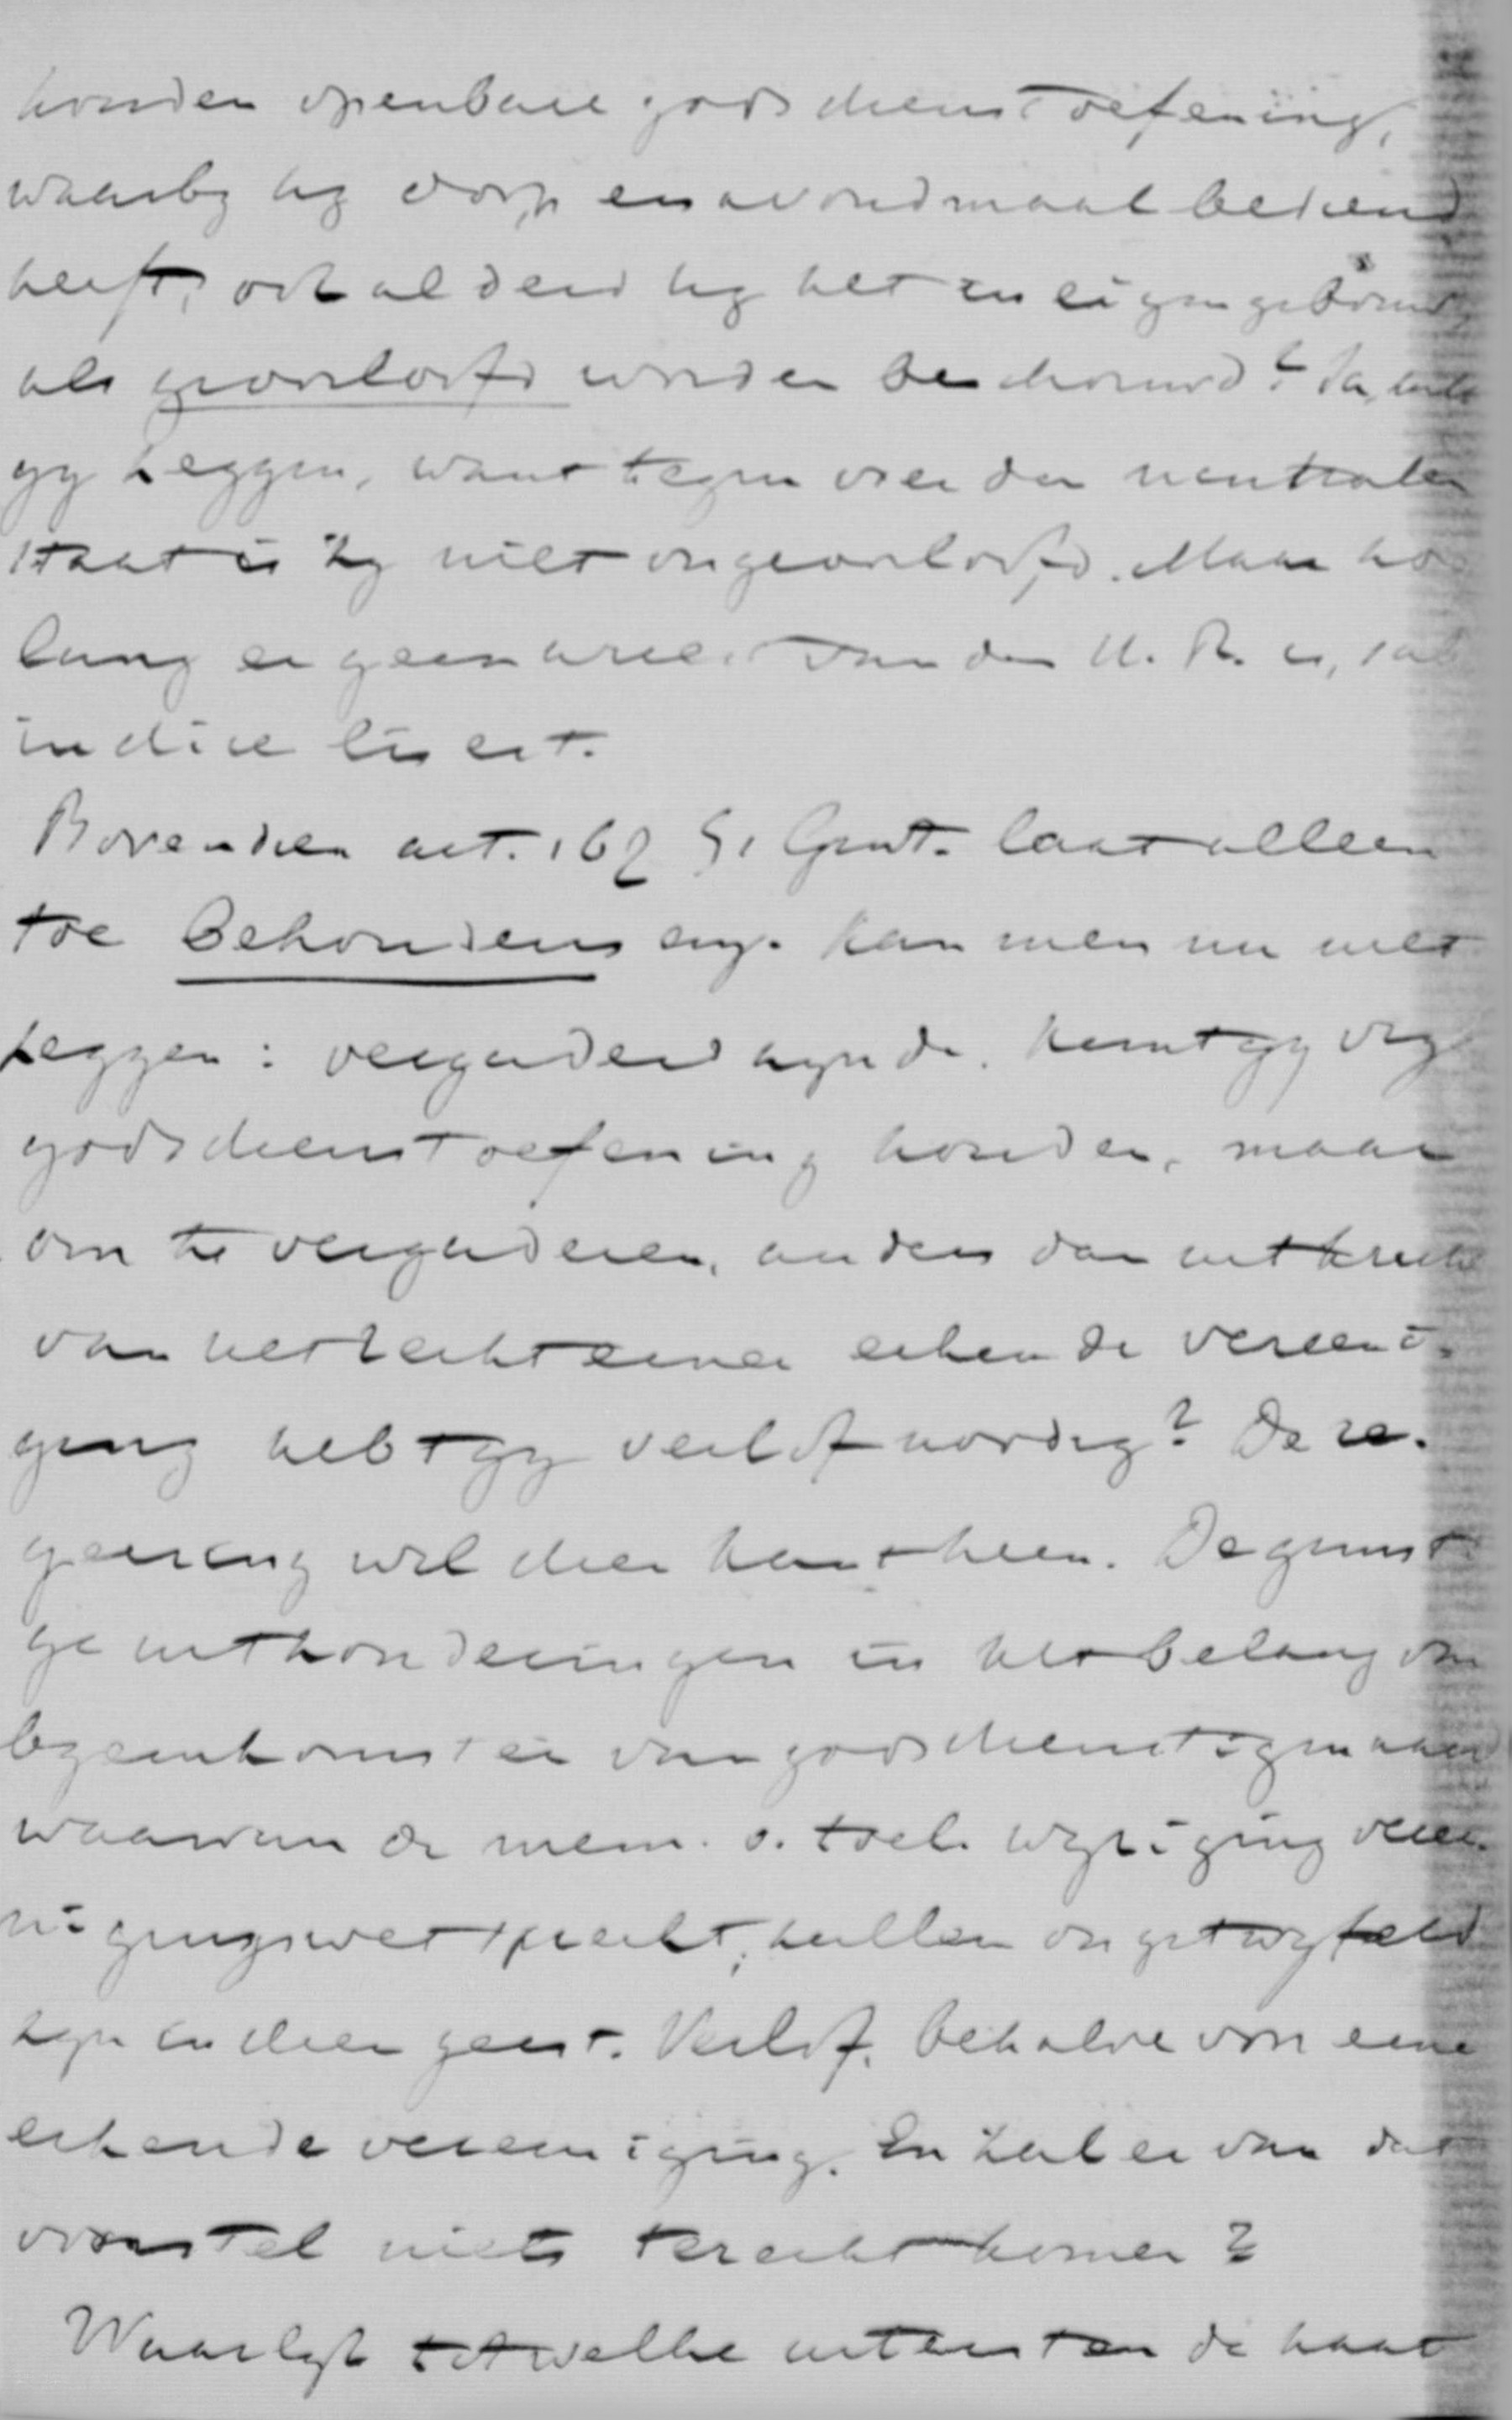 houden openbare godsdienstoefening,
waarby hy doop en avondmaal bediend
heeft, ook al deed hy het in eigen gebouw,
als geoorloofd worden beschouwd? Ja, zult
gy zeggen, want tegenover den neutralen
staat is hy niet ongeoorloofd. Maar zoo
lang er geen arrest van den H. R. is, sub
judice lis est.
Bovendien art. 167 § 1 Grwt. laat alleen
toe behoudens enz. Kan men nu niet
zeggen: vergaderd zynde, kunt gy vry
godsdienstoefening houden, maar
om te vergaderen, anders dan uit kracht
van het recht eener erkende vereeni-
ging hebt gy verlof noodig? De re-
geering wil dien kant heen. De gunsti-
ge uitzonderingen in het belang van
byeenkomsten van godsdienstigen aard
waarvan de mem. v. toel. wyziging veree-
nigingswet spreekt, zullen ongetwyfeld
zyn in dien geest. Verlof, behalve voor eene
erkende vereeniging. En zal er van dat
voorstel niets terecht komen?
Waarlyk tot welke uitersten de haat